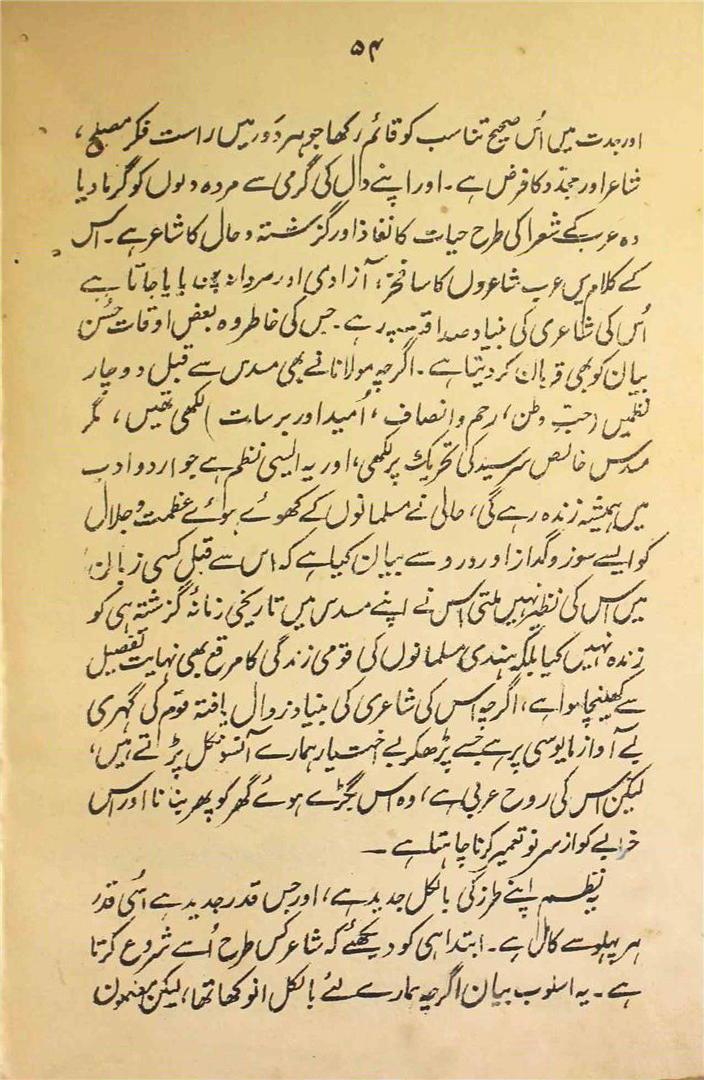 ۵۴
اور جدت میں اُس صحیح تناسب کو قائم رکھا جو ہر دَور میں راست فکر مصلح،
شاعر اور مجدّد کا فرض ہے۔ اور اپنے دل کی گرمی سے مردہ دلوں کو گرما دیا
وہ عرب کے شعرا کی طرح حیات کا نغاذ اور گزشتہ و حال کا شاعر ہے۔ اس
کے کلام میں عرب شاعروں کا سا فخر، آزادی اور مردانہ پن پایا جاتا ہے
اُس کی شاعری کی بنیاد صداقت پر ہے۔ جس کی خاطر وہ بعض اوقات حُسن
بیان کو بھی قربان کر دیتا ہے۔ اگرچہ مولانا نے بھی مسدس سے قبل دو چار
نظمیں (حبّ وطن، رحم و انصاف، اُمید اور برسات) لکھی تھیں، مگر
مسدس خالص سرسید کی تحریک پر لکھی، اور یہ ایسی نظم ہے جو اردو ادب
میں ہمیشہ زندہ رہے گی، حالی نے مسلمانوں کے کھوئے ہوئے عظمت و جلال
کو ایسے سوز و گداز اور درد سے بیان کیا ہے کہ اس سے قبل کسی زبان
میں اس کی نظیر نہیں ملتی اس نے اپنے مسدس میں تاریخی زمانۂ گزشتہ ہی کو
زندہ نہیں کیا بلکہ ہندی مسلمانوں کی قومی زندگی کا مرقع بھی نہایت تفصیل
سے کھینچا ہوا ہے، اگرچہ اس کی شاعری کی بنیاد زوال یافتہ قوم کی گہری
بے آواز مایوسی پر ہے جسے پڑھ کر بے اختیار ہمارے آنسو نکل پڑتے ہیں،
لیکن اس کی روح عربی ہے، وہ اس بگڑے ہوئے گھر کو پھر بنانا اور اس
خرابے کو از سر نو تعمیر کرنا چاہتا ہے۔
یہ نظم اپنے طرز کی بالکل جدید ہے، اور جس قدر جدید ہے اُسی قدر
ہر پہلو سے کامل ہے۔ ابتدا ہی کو دیکھئے کہ شاعر کس طرح اُسے شروع کرتا
ہے۔ یہ اسلوب بیان اگرچہ ہمارے لئے بالکل انوکھا تھا، لیکن مضمون